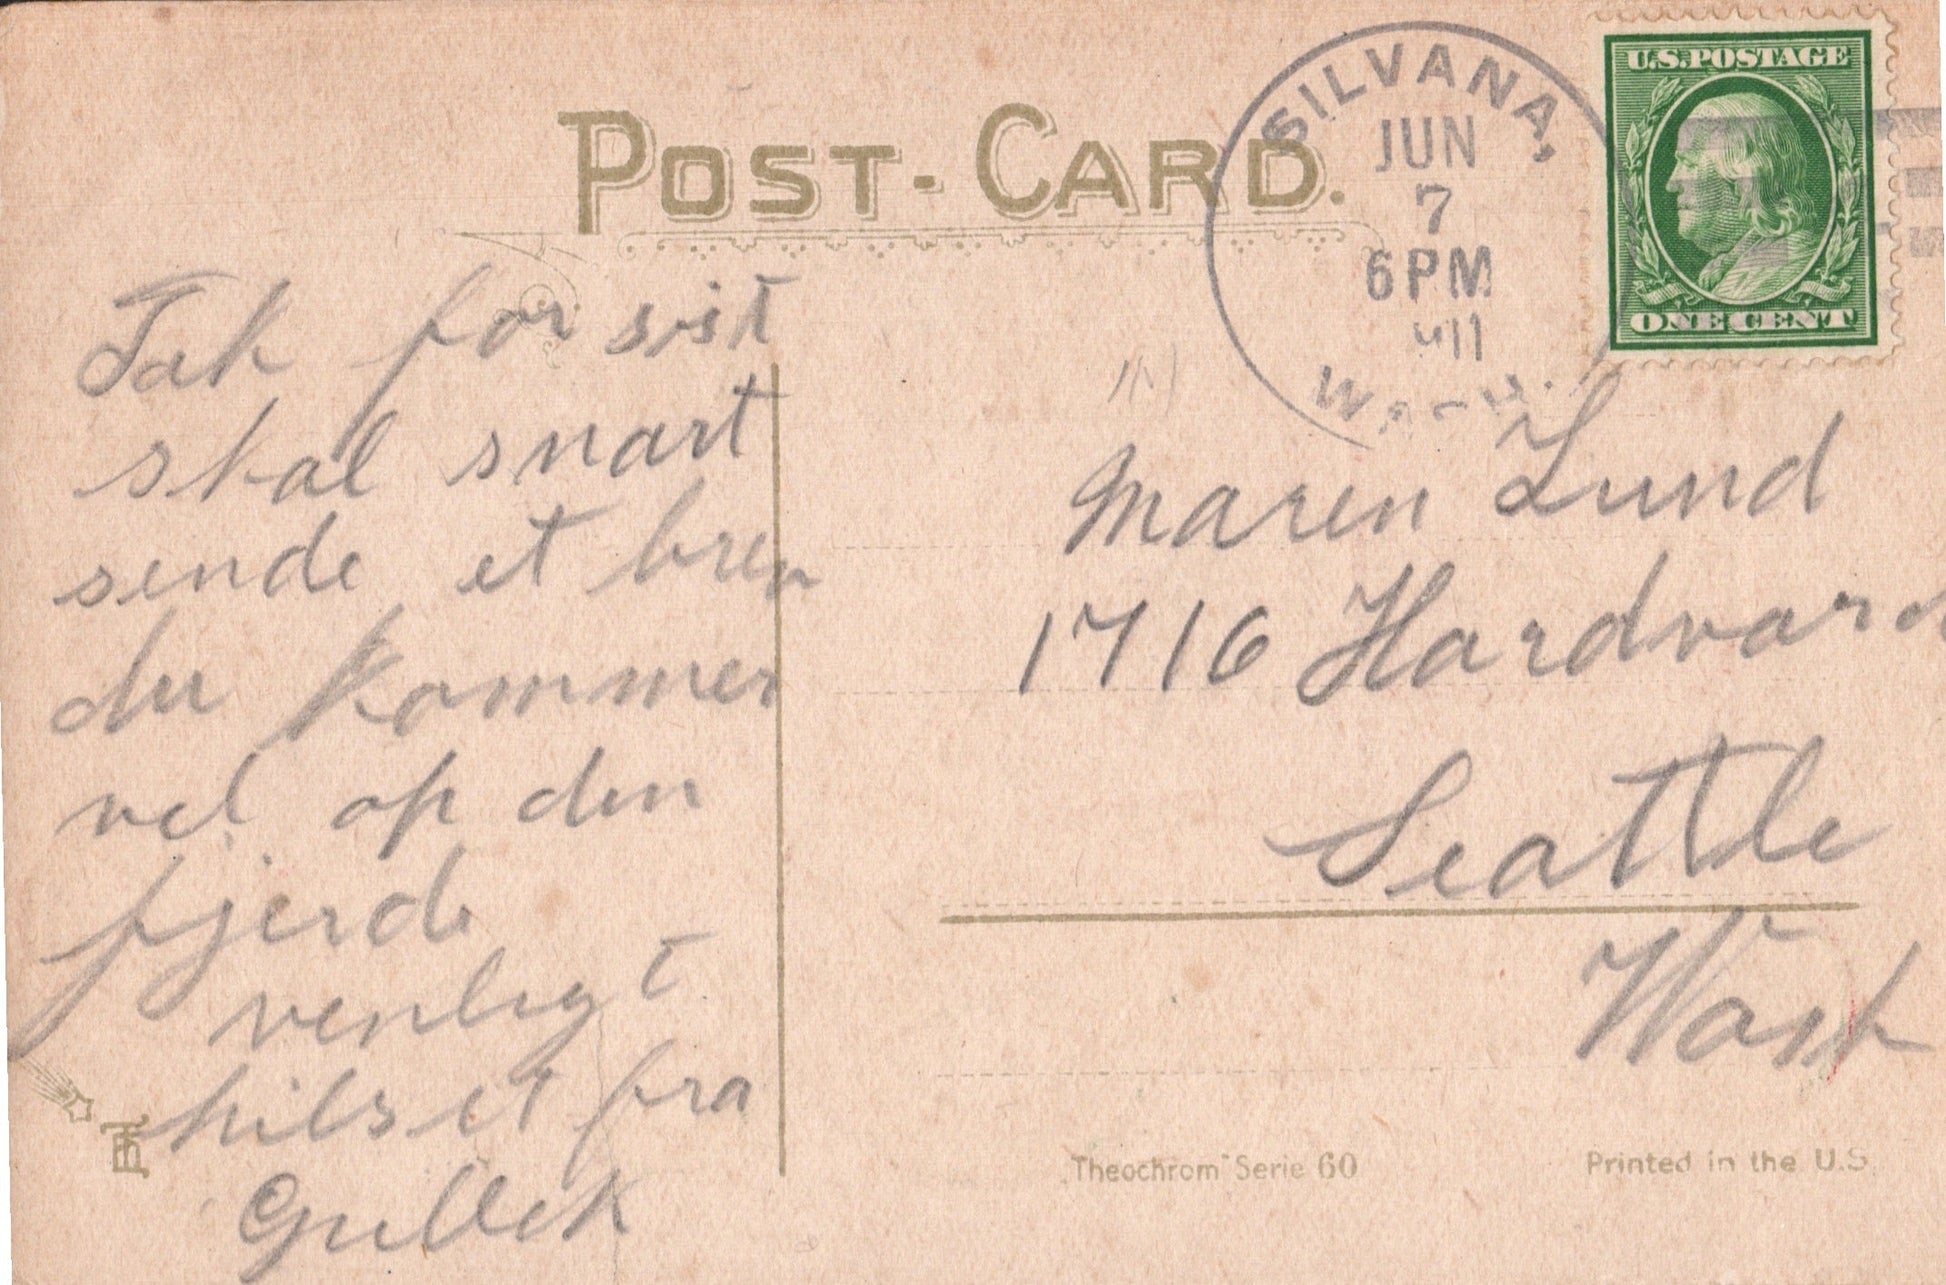 POST-CARD.
SILVANA,
JUN
7
6 PM
WASH.
U.S. POSTAGE
ONE CENT
Tak for sist
skal snart
sende et brev
du kommer
vel op den
fjerde
venligt
hilset fra
Maren Lund
1716 Hardvard
Seattle
Wash
Theochrom Serie 60
Printed in the U.S.